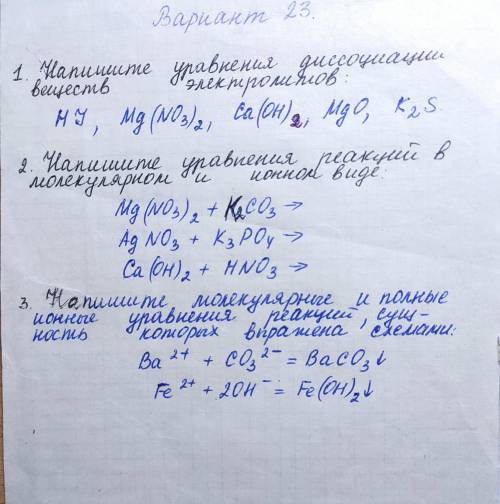 Вариант 23.
1. Напишите уравнения диссоциации
веществ электролитов:
HJ, Mg(NO₃)₂, Ca(OH)₂, MgO, K₂S.
2. Напишите уравнения реакций в
молекулярном и ионном виде:
Mg(NO₃)₂ + K₂CO₃ →
AgNO₃ + K₃PO₄ →
Ca(OH)₂ + HNO₃ →
3. Напишите молекулярные и полные
ионные уравнения реакций, сущ-
ность которых выражена схемами:
Ba²⁺ + CO₃²⁻ = BaCO₃↓
Fe²⁺ + 2OH⁻ = Fe(OH)₂↓